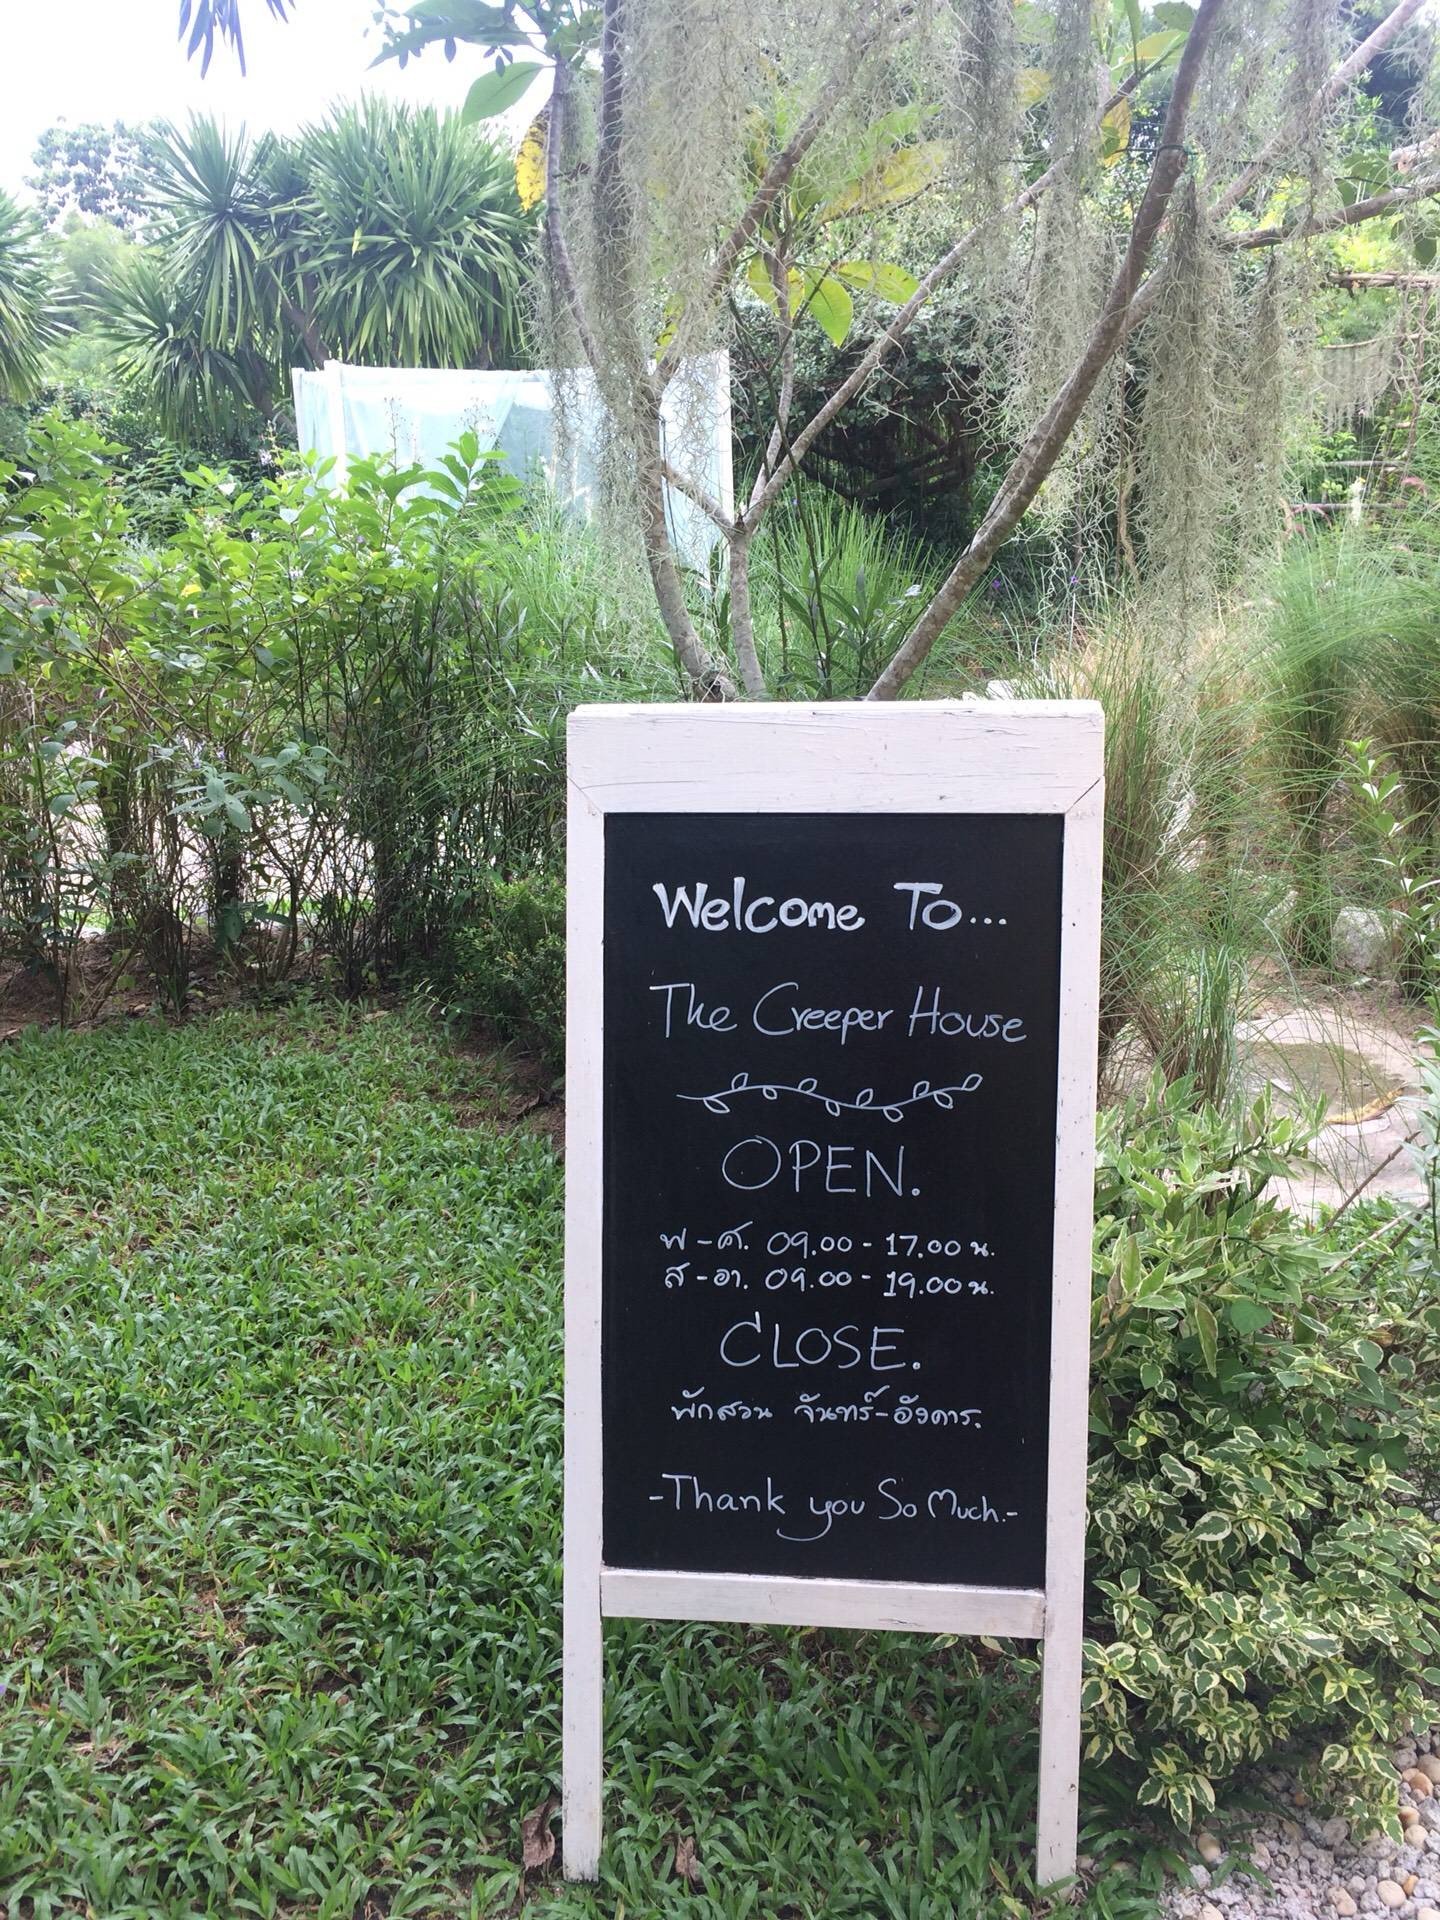 Welcome To...
The Creeper House
OPEN.
พ-ศ. 09.00-17.00 น.
ส-อา. 09.00-19.00 น.
CLOSE.
พักสวน จันทร์-อังคาร.
-Thank you So Much.-